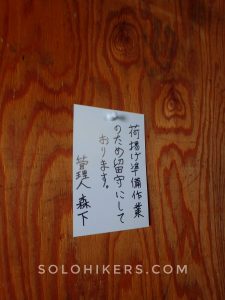 荷揚げ準備作業
のため留守にして
おります。
管理人 森下
SOLOHIKERS.COM